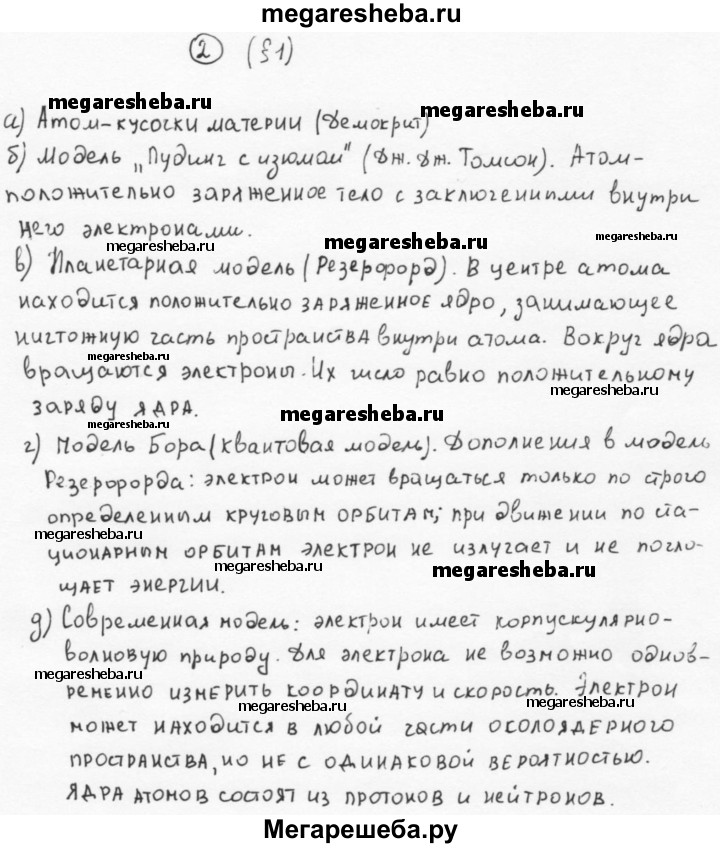 megaresheba.ru
2 (§1)
megaresheba.ru megaresheba.ru
а) Атом-кусочки материи (Демокрит)
б) Модель „Пудинг с изюмом" (Дж. Дж. Томсон). Атом-
положительно заряженное тело с заключениями внутри
него электронами.
megaresheba.ru megaresheba.ru megaresheba.ru
в) Планетарная модель (Резерфорд). В центре атома
находится положительно заряженное ядро, занимающее
ничтожную часть пространства внутри атома. Вокруг ядра
megaresheba.ru
вращаются электроны. Их число равно положительному
megaresheba.ru
заряду ядра.
megaresheba.ru
г) Модель Бора (квантовая модель). Дополнения в модель
Резерфорда: электрон может вращаться только по строго
определенным круговым орбитам; при движении по ста-
megaresheba.ru
ционарным орбитам электрон не излучает и не погло-
megaresheba.ru megaresheba.ru
щает энергии.
д) Современная модель: электрон имеет корпускулярно-
волновую природу. Для электрона не возможно однов-
megaresheba.ru
ременно измерить координату и скорость. Электрон
megaresheba.ru megaresheba.ru
может находится в любой части околоядерного
пространства, но не с одинаковой вероятностью.
megaresheba.ru megaresheba.ru
Ядра атомов состоят из протонов и нейтронов.
Мегарешеба.ру